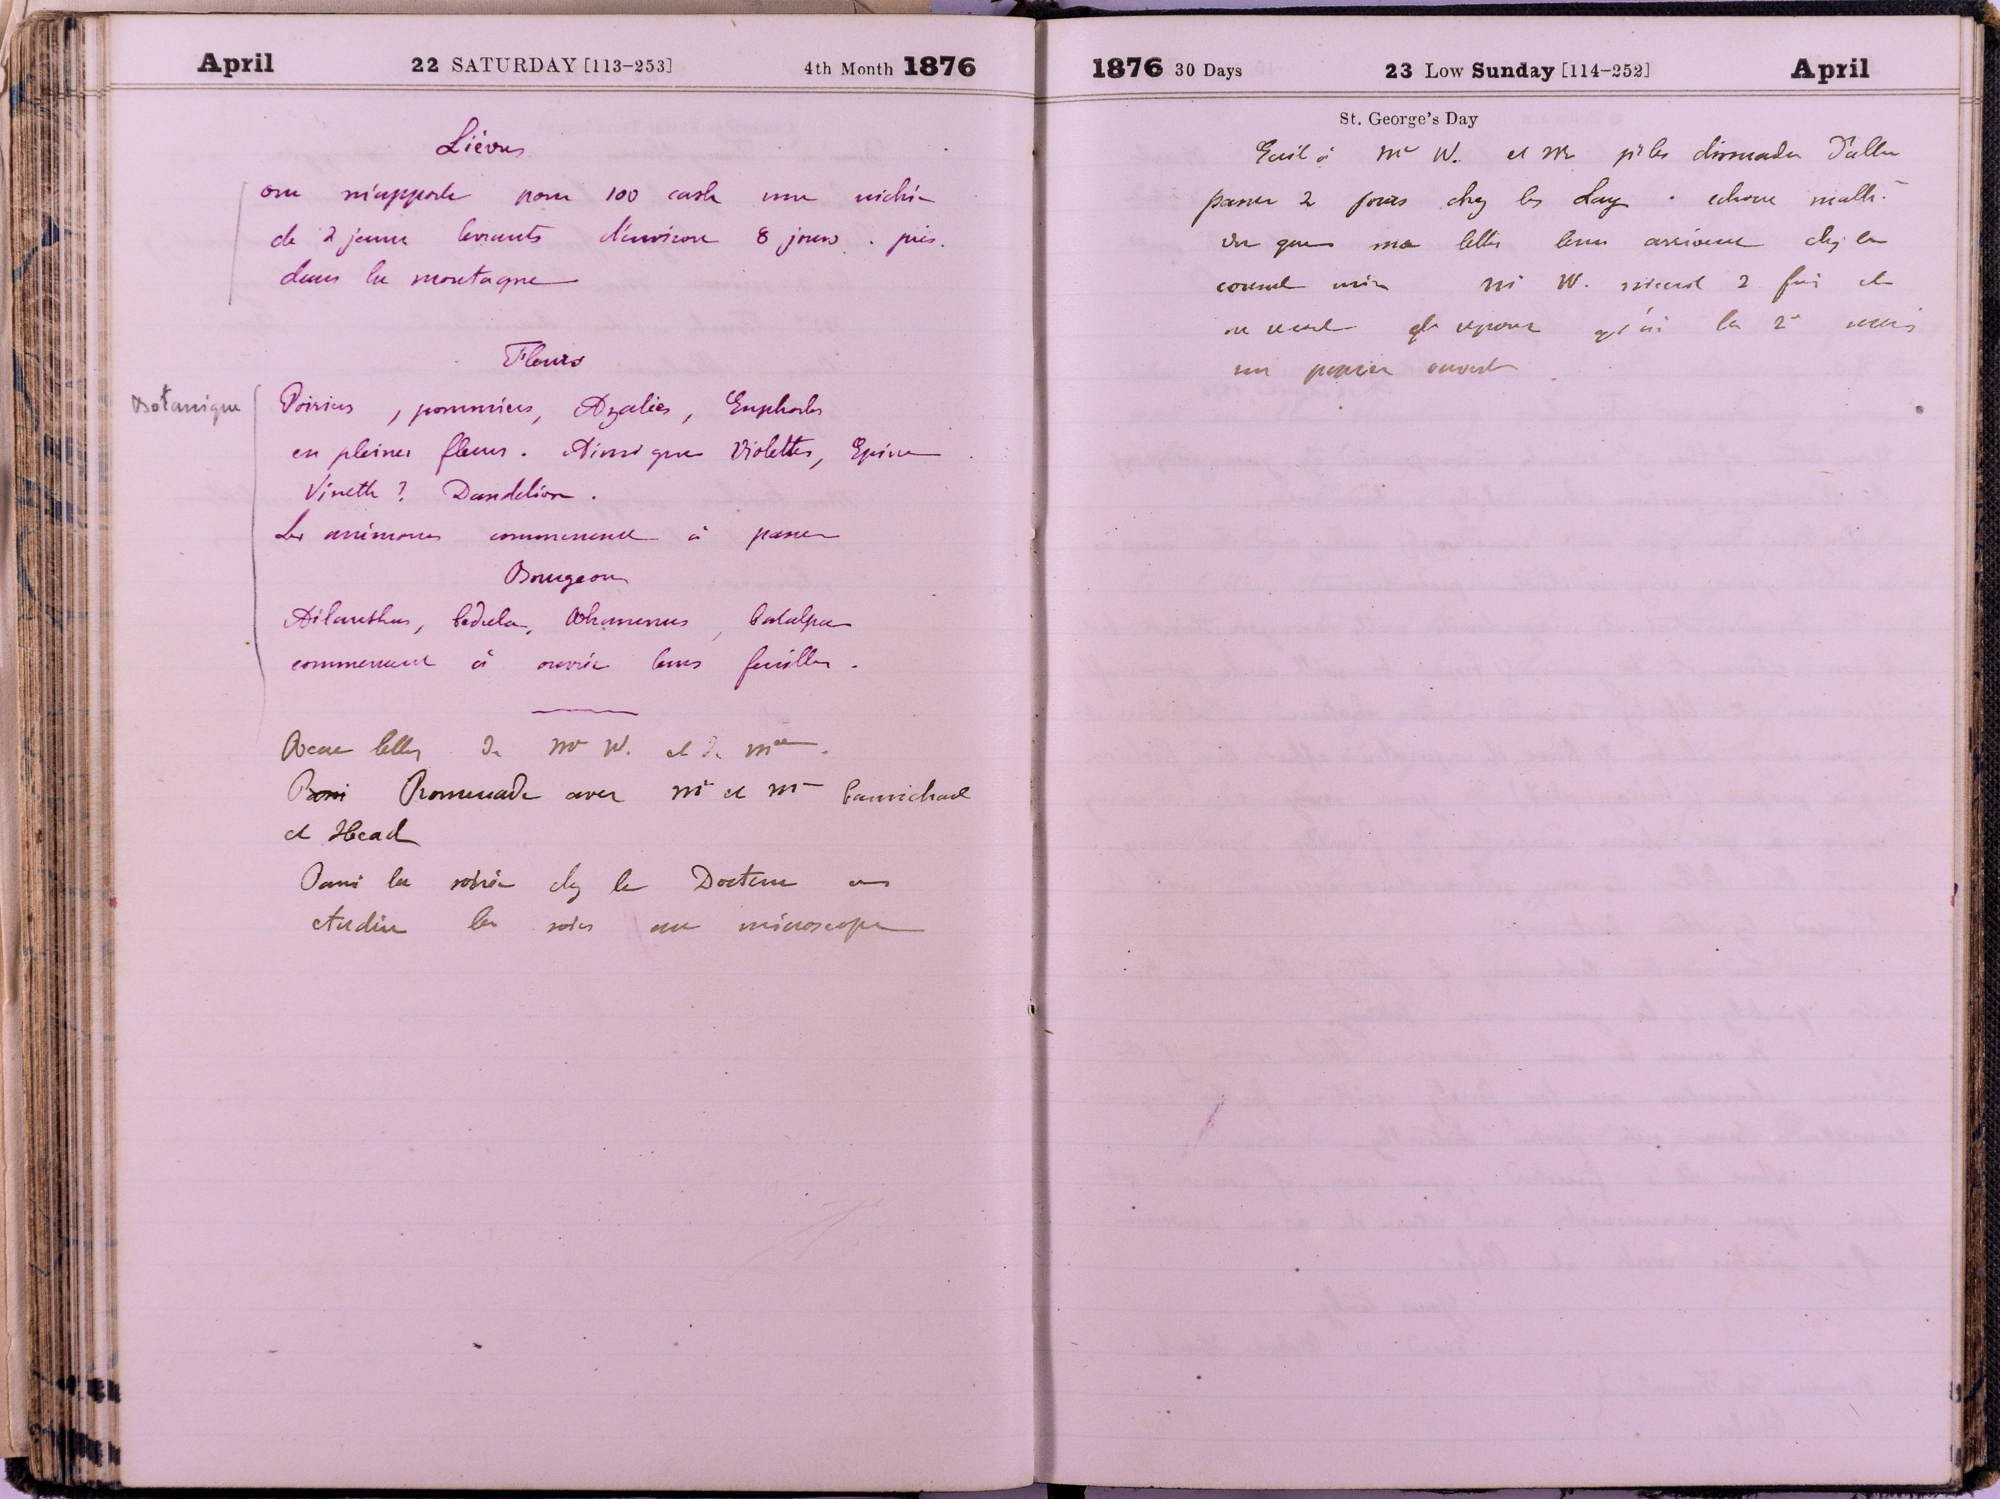 April 22 SATURDAY [113-253] 4th Month 1876
Lièvres
on m'apporte pour 100 cash une nichée
de 2 jeunes levrauts d'environ 8 jours . pris
dans la montagne
Fleurs
Botanique
Poiriers , pommiers, Azalées, Euphorbes
en pleines fleurs . Ainsi que Violettes, Epine
Vinette ? Dandelion .
Les anémones commencent à passer
Bourgeons
Ailanthus, Cedrela, Rhamnus , Catalpa
commencent à ouvrir leurs feuilles .
Reçu lettres de Mr W. et de Mme .
Promenade avec Mr et Me Carmichael
et Head
Passé la soirée chez le Docteur
étudier les soies au microscope
1876 30 Days 23 Low Sunday [114-252] April
St. George's Day
Ecrit à Mr W. et Me pr les dissuader d'aller
passer 2 jours chez les
que ma lettre leur arrivent chez le
consul Mr W. 2 fois et
ne veut réponse la 2e
un papier ouvert